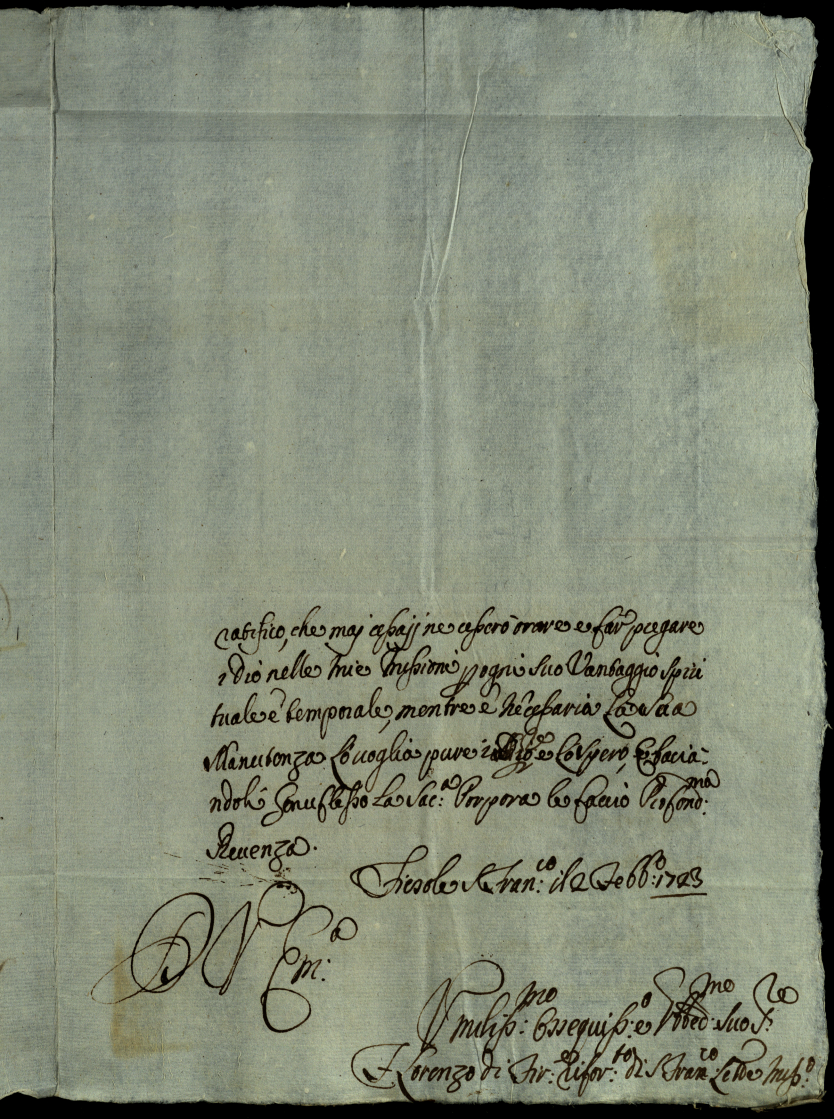 ratifico, che maj cessajj ne cesserò orare e far pregare
idio nelle mie missioni p ogni suo Vantaggio spiri
tuale e temporale, mentre è necessaria La sua
Manutenza Lo voglia pure e Lo spero, e bacia=
ndole Genuflesso La Sac:ª Porpora le faccio Profond:ma
Revenza.
Fiesole S Fran:co il 2 Febb:º 1723
D V Em:ª
Vmiliss:mo Ossequiss:º e Obbed:mo Suo Sre
F Lorenzo di Fir:e Rifor:to di S Fran:co Miss:º